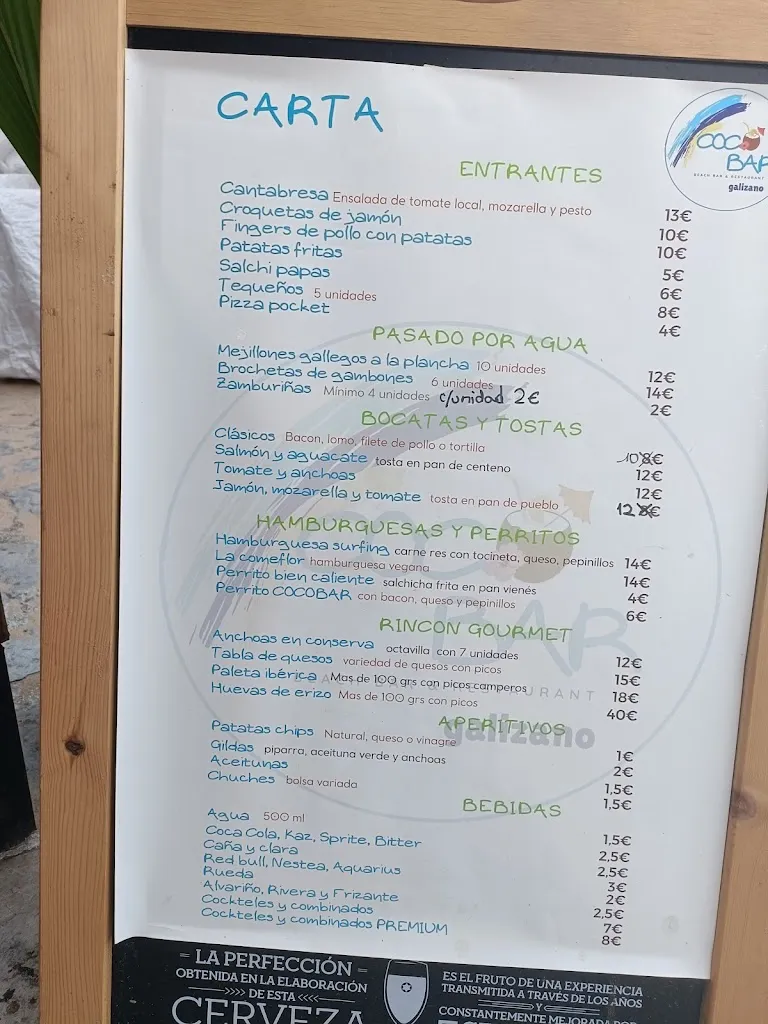 CARTA
COCO
BAR
BEACH BAR & RESTAURANT
galizano
ENTRANTES
Cantabresa Ensalada de tomate local, mozarella y pesto 13€
Croquetas de jamón 10€
Fingers de pollo con patatas 10€
Patatas fritas 5€
Salchi papas 6€
Tequeños 5 unidades 8€
Pizza pocket 4€
PASADO POR AGUA
Mejillones gallegos a la plancha 10 unidades 12€
Brochetas de gambones 6 unidades 14€
Zamburiñas Mínimo 4 unidades c/unidad 2€ 2€
BOCATAS Y TOSTAS
Clásicos Bacon, lomo, filete de pollo o tortilla 10 8€
Salmón y aguacate tosta en pan de centeno 12€
Tomate y anchoas 12€
Jamón, mozarella y tomate tosta en pan de pueblo 12 8€
HAMBURGUESAS Y PERRITOS
Hamburguesa surfing carne res con tocineta, queso, pepinillos 14€
La comeflor hamburguesa vegana 14€
Perrito bien caliente salchicha frita en pan vienés 4€
Perrito COCOBAR con bacon, queso y pepinillos 6€
RINCON GOURMET
Anchoas en conserva octavilla con 7 unidades 12€
Tabla de quesos variedad de quesos con picos 15€
Paleta ibérica Mas de 100 grs con picos camperos 18€
Huevas de erizo Mas de 100 grs con picos 40€
APERITIVOS
Patatas chips Natural, queso o vinagre 1€
Gildas piparra, aceituna verde y anchoas 2€
Aceitunas 1,5€
Chuches bolsa variada 1,5€
BEBIDAS
Agua 500 ml 1,5€
Coca Cola, Kaz, Sprite, Bitter 2,5€
Caña y clara 2,5€
Red bull, Nestea, Aquarius 3€
Rueda 2€
Alvariño, Rivera y Frizante 2,5€
Cockteles y combinados 7€
Cockteles y combinados PREMIUM 8€
COCO
BAR
BEACH BAR & RESTAURANT
galizano
LA PERFECCIÓN
OBTENIDA EN LA ELABORACIÓN
DE ESTA
CERVEZA
ES EL FRUTO DE UNA EXPERIENCIA
TRANSMITIDA A TRAVÉS DE LOS AÑOS
Y
CONSTANTEMENTE MEJORADA POR